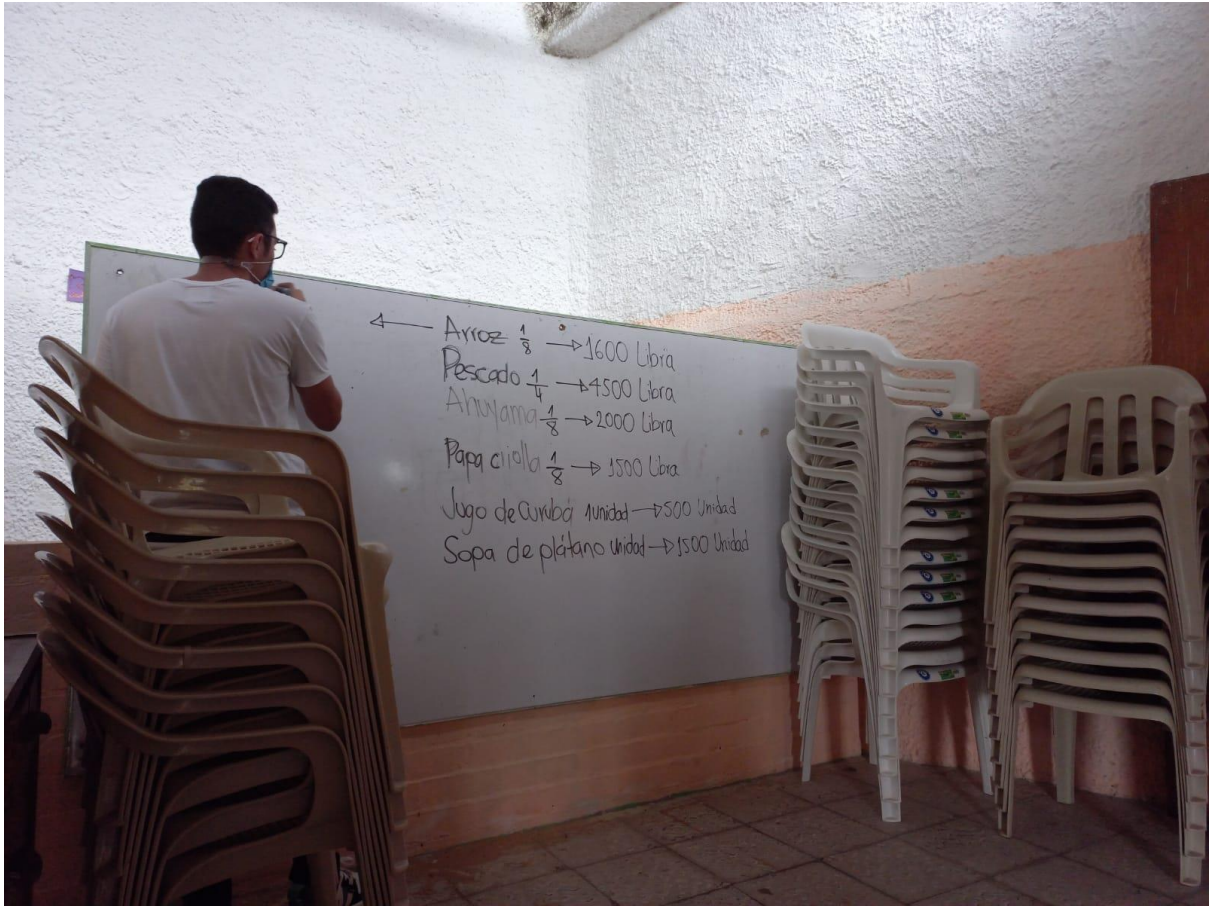 ← Arroz 1/8 → 1600 Libra
Pescado 1/4 → 4500 Libra
Ahuyama 1/8 → 2000 Libra
Papa criolla 1/8 → 1500 Libra
Jugo de Curuba 1unidad → 500 Unidad
Sopa de plátano unidad → 1500 Unidad